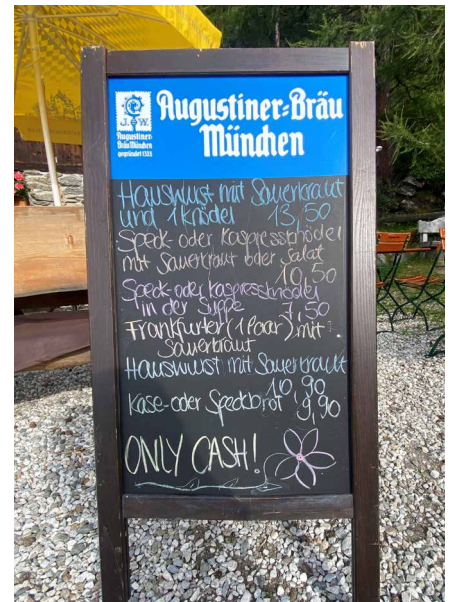 J. & W.
Augustiner-
Bräu München
gegründet 1328
Augustiner-Bräu
München
Hauswurst mit Sauerkraut
und 1 Knödel 13,50
Speck- oder Kaspressknödel
mit Sauerkraut oder Salat
10,50
Speck- oder Kaspressknödel
in der Suppe 7,50
Frankfurter (1 Paar) mit
Sauerkraut
Hauswurst mit Sauerkraut
10,90
Käse- oder Speckbrot 9,90
ONLY CASH!